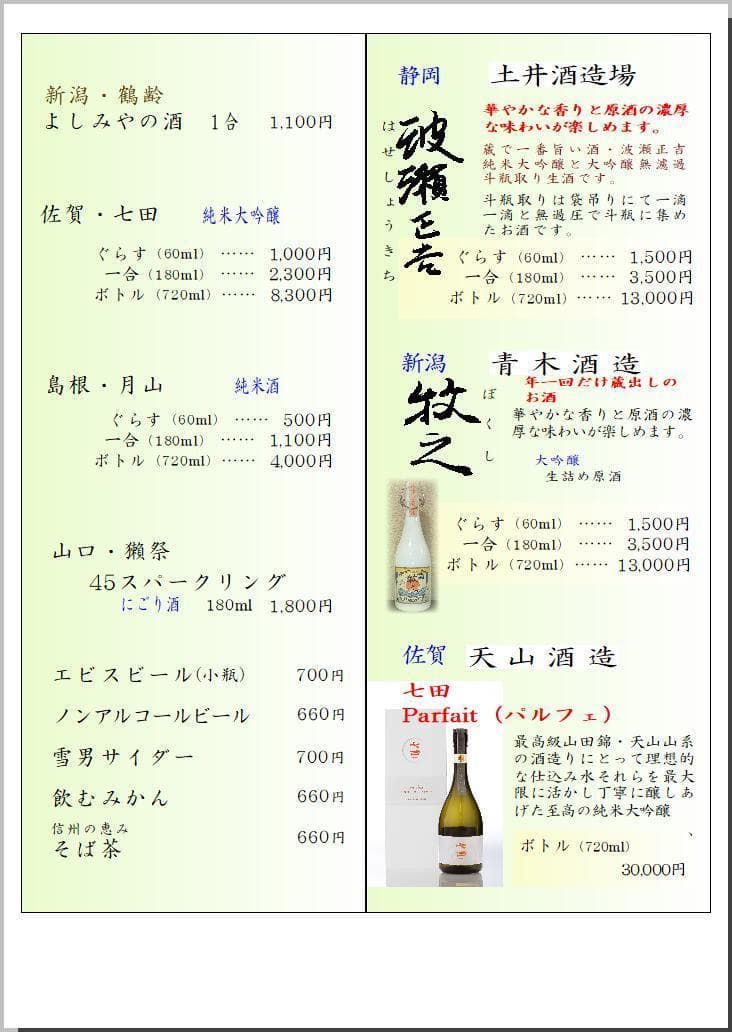 新潟・鶴齢
よしみやの酒 1合 1,100円
佐賀・七田 純米大吟醸
ぐらす（60ml） …… 1,000円
一合（180ml） …… 2,300円
ボトル（720ml） …… 8,300円
島根・月山 純米酒
ぐらす（60ml） …… 500円
一合（180ml） …… 1,100円
ボトル（720ml） …… 4,000円
山口・獺祭
45スパークリング
にごり酒 180ml 1,800円
エビスビール(小瓶) 700円
ノンアルコールビール 660円
雪男サイダー 700円
飲むみかん 660円
信州の恵み
そば茶 660円
静岡 土井酒造場
波瀬正吉
はせしょうきち
華やかな香りと原酒の濃厚
な味わいが楽しめます。
蔵で一番旨い酒・波瀬正吉
純米大吟醸と大吟醸無濾過
斗瓶取り生酒です。
斗瓶取りは袋吊りにて一滴
一滴と無過圧で斗瓶に集め
たお酒です。
ぐらす（60ml） …… 1,500円
一合（180ml） …… 3,500円
ボトル（720ml）…… 13,000円
新潟 青木酒造
牧之
ぼくし
年一回だけ蔵出しの
お酒
華やかな香りと原酒の濃
厚な味わいが楽しめます。
大吟醸
生詰め原酒
ぐらす（60ml） …… 1,500円
一合（180ml） …… 3,500円
ボトル（720ml）…… 13,000円
佐賀 天山酒造
七田
Parfait（パルフェ）
最高級山田錦・天山山系
の酒造りにとって理想的
な仕込み水それらを最大
限に活かし丁寧に醸しあ
げた至高の純米大吟醸
、
ボトル（720ml）
30,000円